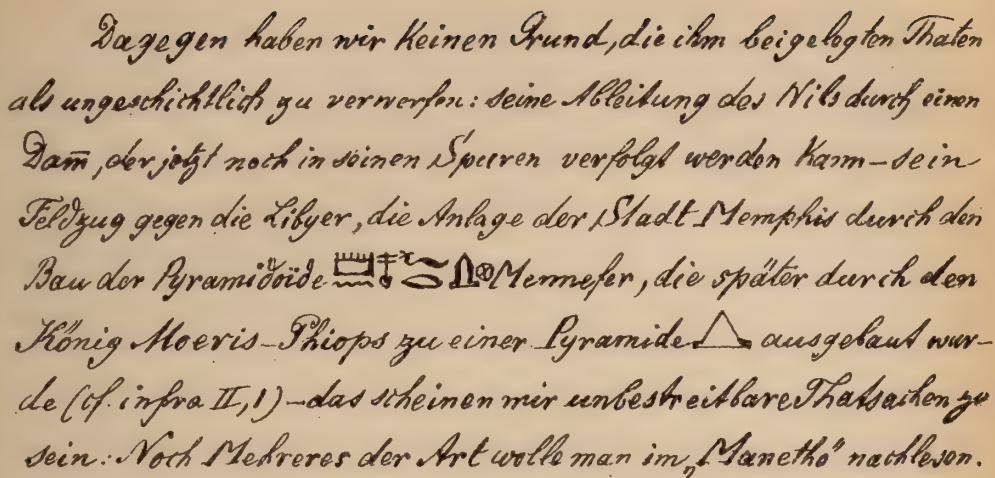 Dagegen haben wir Keinen Grund, die ihm beigelegten Thaten
als ungeschichtlich zu verwerfen: seine Ableitung des Nils durch einen
Dam̄, der jetzt noch in seinen Spuren verfolgt werden Kann – sein
Feldzug gegen die Libyer, die Anlage der Stadt Memphis durch den
Bau der Pyramidoïde Mennefer, die später durch den
König Moeris-Phiops zu einer Pyramide ausgebaut wur-
de (cf. infra II, 1) – das scheinen mir unbestreitbare Thatsachen zu
sein. Noch Mehreres der Art wolle man im „Manethô" nachlesen.